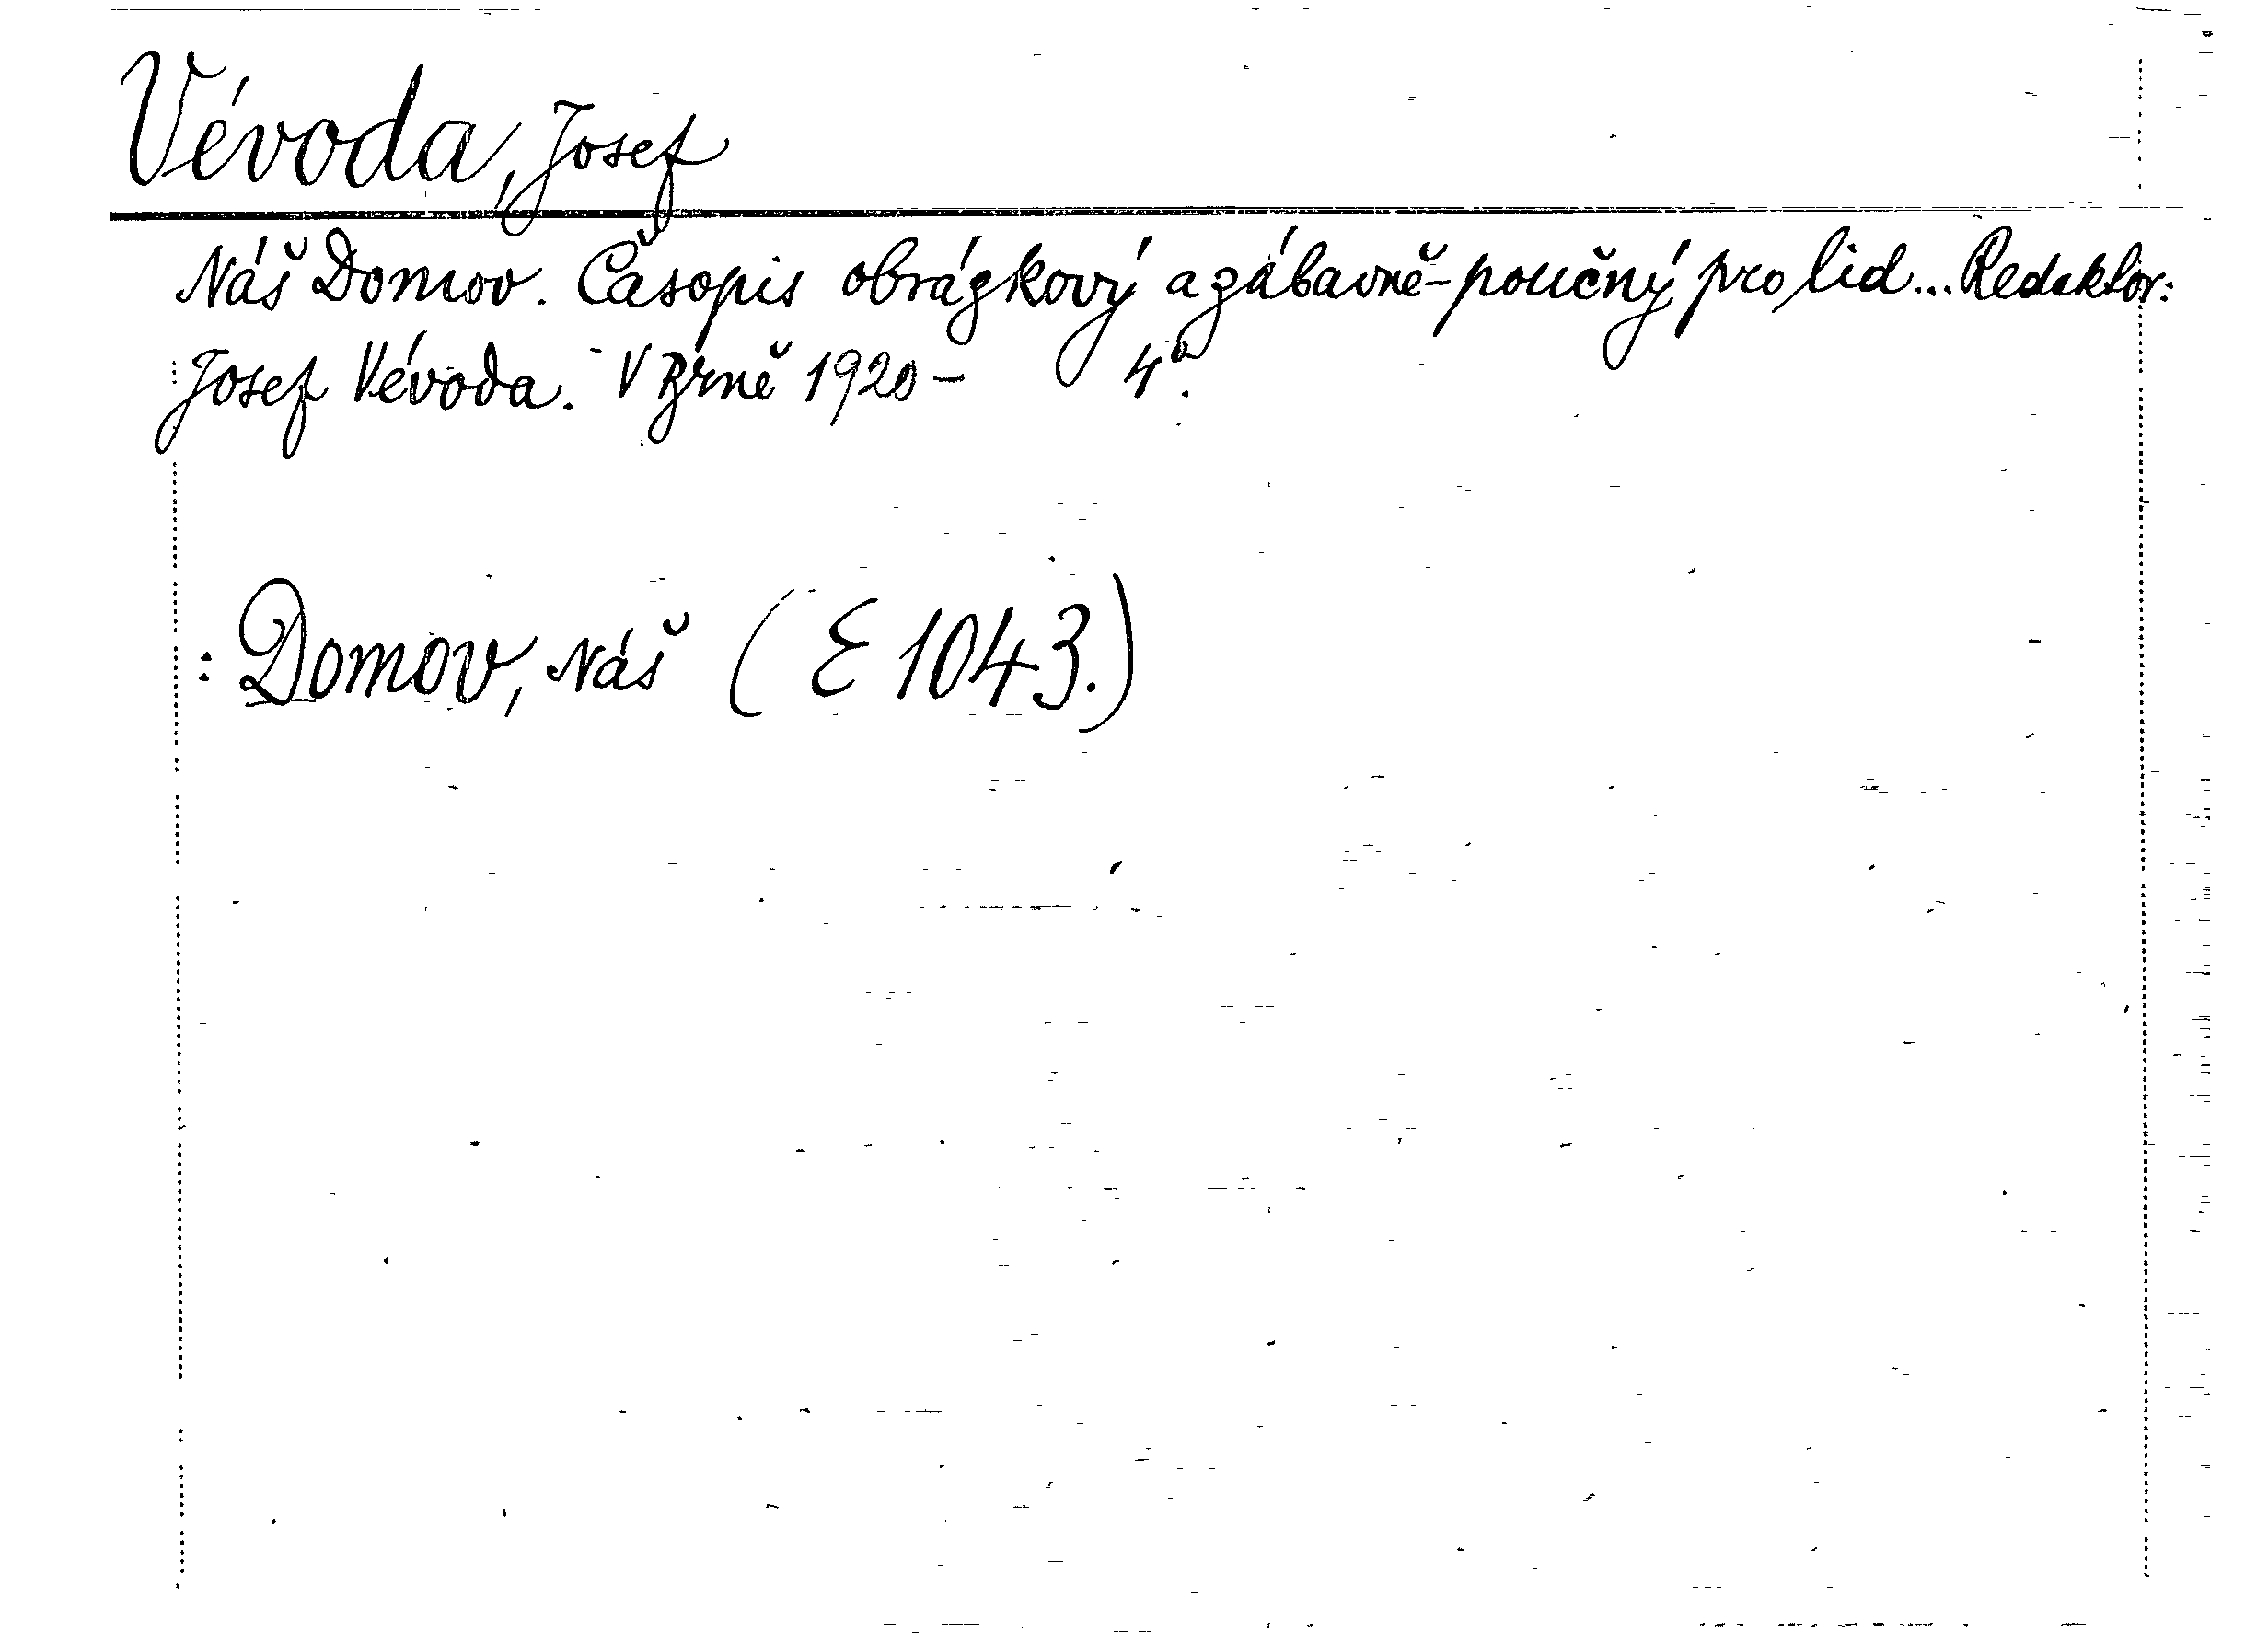 Vévoda, Josef
Náš Domov. Časopis obrázkový a zábavně-poučný pro lid... Redaktor:
Josef Vévoda. V Brně 1920- 4°.
: Domov, Náš (E 1043.)